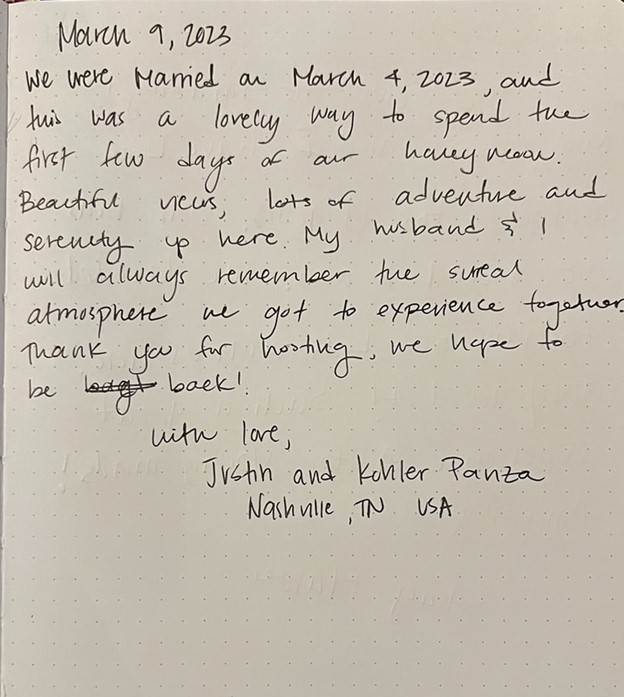 March 9, 2023
We were Married on March 4, 2023, and
this was a lovely way to spend the
first few days of our honey moon.
Beautiful views, lots of adventure and
serenity up here. My husband & I
will always remember the surreal
atmosphere we got to experience together.
Thank you for hosting, we hope to
be back!
with love,
Justin and Kohler Panza
Nashville, TN USA